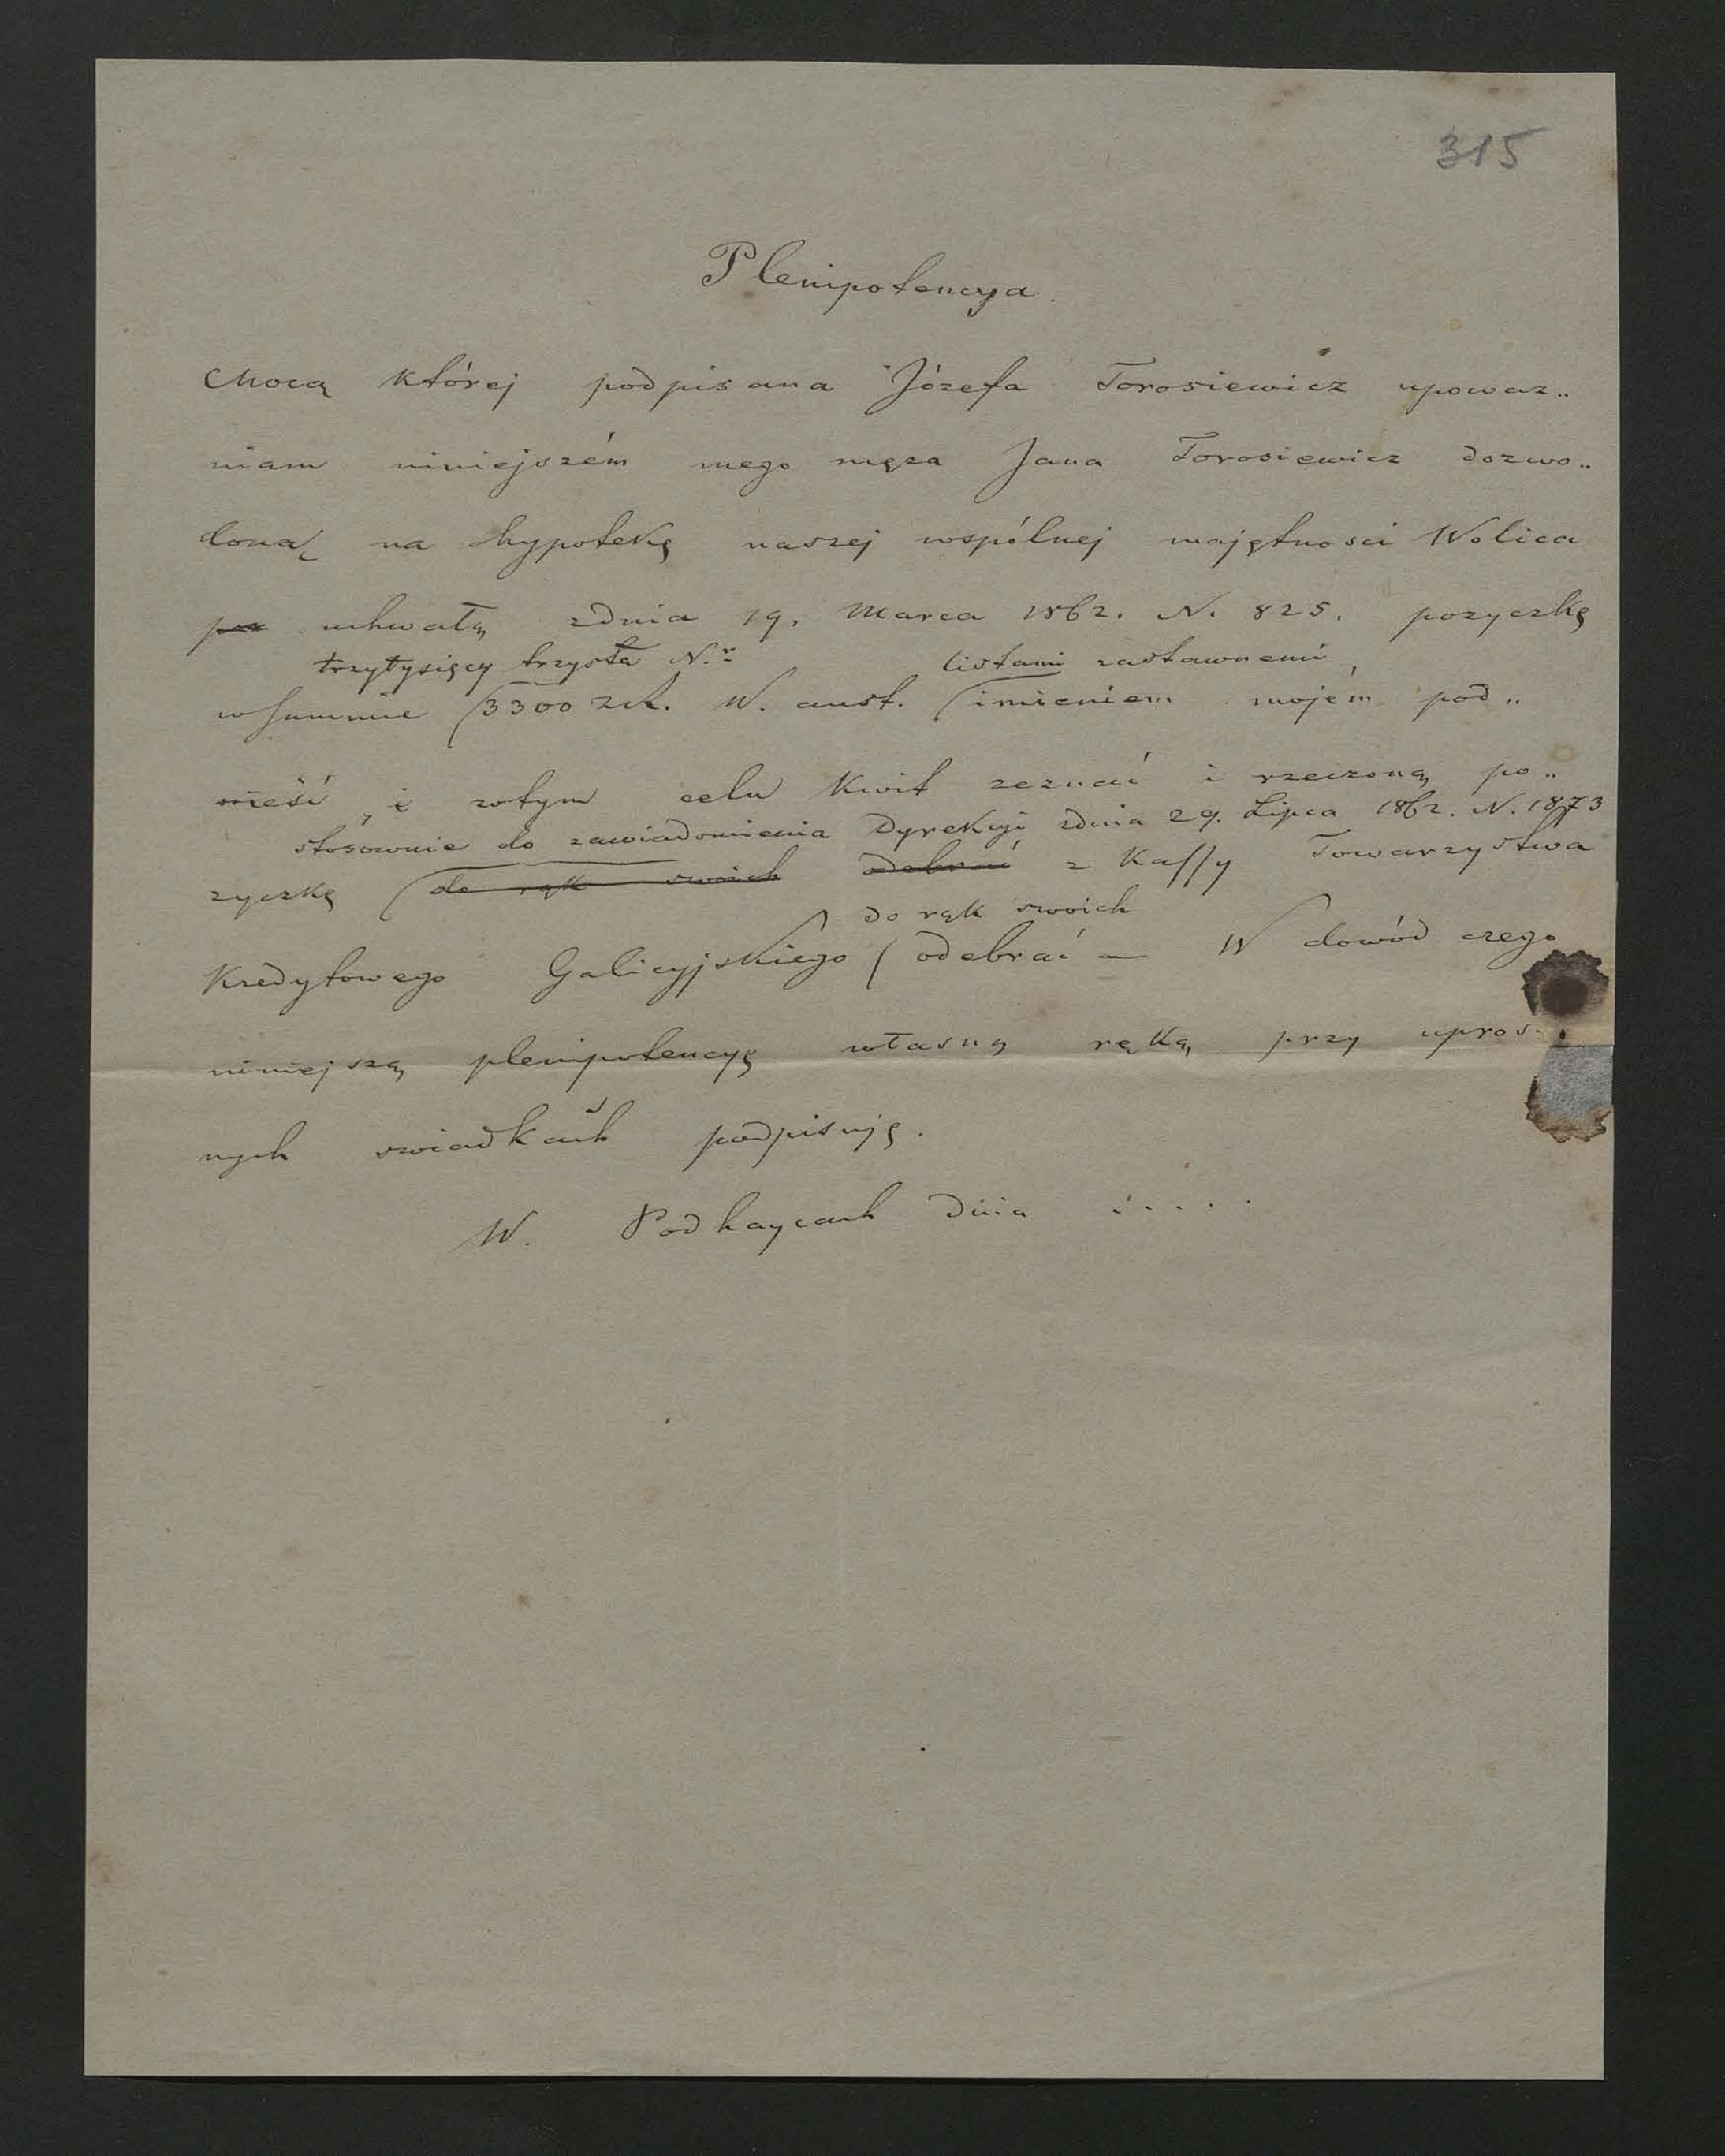 315
Plenipotencya.
Mocą której podpisana Józefa Torosiewicz upowaz„
niam niniejszém mego męza Jana Torosiewicz dozwo„
loną na hypotekę naszej wspólnej majętnosci Wolica
uchwałą zdnia 19. Marca 1862. N. 825. pozyczkę
trzytysięcy trzysta N.r listami zastawnemi
wSummie 3300 zł. W. aust. imieniem mojém pod„
nieść, i wtym celu Kwit zeznać i rzeczoną po„
stósownie do zawiadomienia Dyrekcyi zdnia 29. Lipca 1862. N. 1873
zyczkę do rąk swoich odebrać z Kassy Towarzystwa
do rąk swoich
Kredytowego Galicyjskiego odebrać — W dowód czego
niniejszą plenipotencyę własną ręką przy upros
nych swiadkach podpisuję.
W. Podhaycach dnia .....